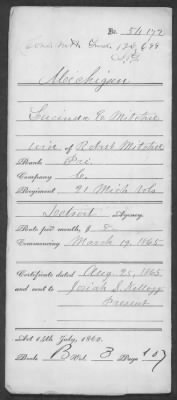 No. 54,172
Michigan
Lucinda E. Mitchie
wid. of Robert Mitchie
Rank Pri.
Company C.
Regiment 21 Mich Vols
Detroit Agency.
Rate per month, $ 8
Commencing March 19, 1865
Certificate dated Aug 25, 1865
and sent to Josiah S. Kellogg
Present
Act 14th July, 1862.
Book B Vol. 3 Page 107